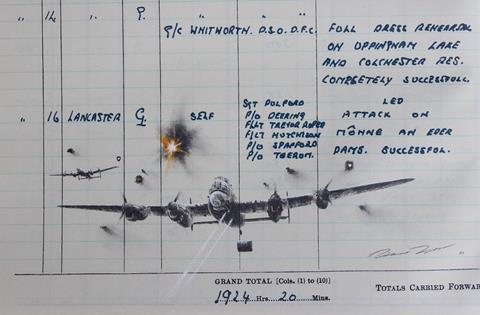 " 14 " P. " "
G/C WHITWORTH. D.S.O. D.F.C. FULL DRESS REHERSAL
ON UPPINGHAM LAKE
AND COLCHESTER RES.
COMPLETELY SUCCESSFUL.
" 16 LANCASTER G SELF
SGT PULFORD
P/O DEERING
F/LT TREVOR ROPER
F/LT HUTCHISON
P/O SPAFFORD
P/O TAERUM.
LED
ATTACK ON
MÖHNE AN EDER
DAMS. SUCCESSFUL.
GRAND TOTAL [Cols. (1) to (10)]
1924 Hrs. 20 Mins.
TOTALS CARRIED FORWAR